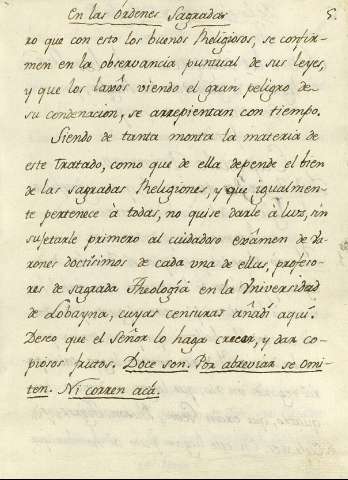 En las Ordenes Sagradas 5.
ro que con esto los buenos Religiosos, se confir-
men en la observancia puntual de sus leyes,
y que los laxôs viendo el gran peligro de
su condenacion, se arrepientan con tiempo.
Siendo de tanta monta la materia de
este Tratado, como que de ella depende el bien
de las sagradas Religiones, y que igualmen-
te pertenece à todas, no quise darle à luz, sin
sujetarle primero al cuidadoso exâmen de Va-
rones doctisimos de cada una de ellas, profeso-
res de sagrada Theologia en la Universidad
de Lobayna, cuyas censuras añadi aqui.
Deseo que el Señor lo haga crecer, y dar co-
piosos frutos. Doce son. Por abreviar se omi-
ten. Ni corren acá.